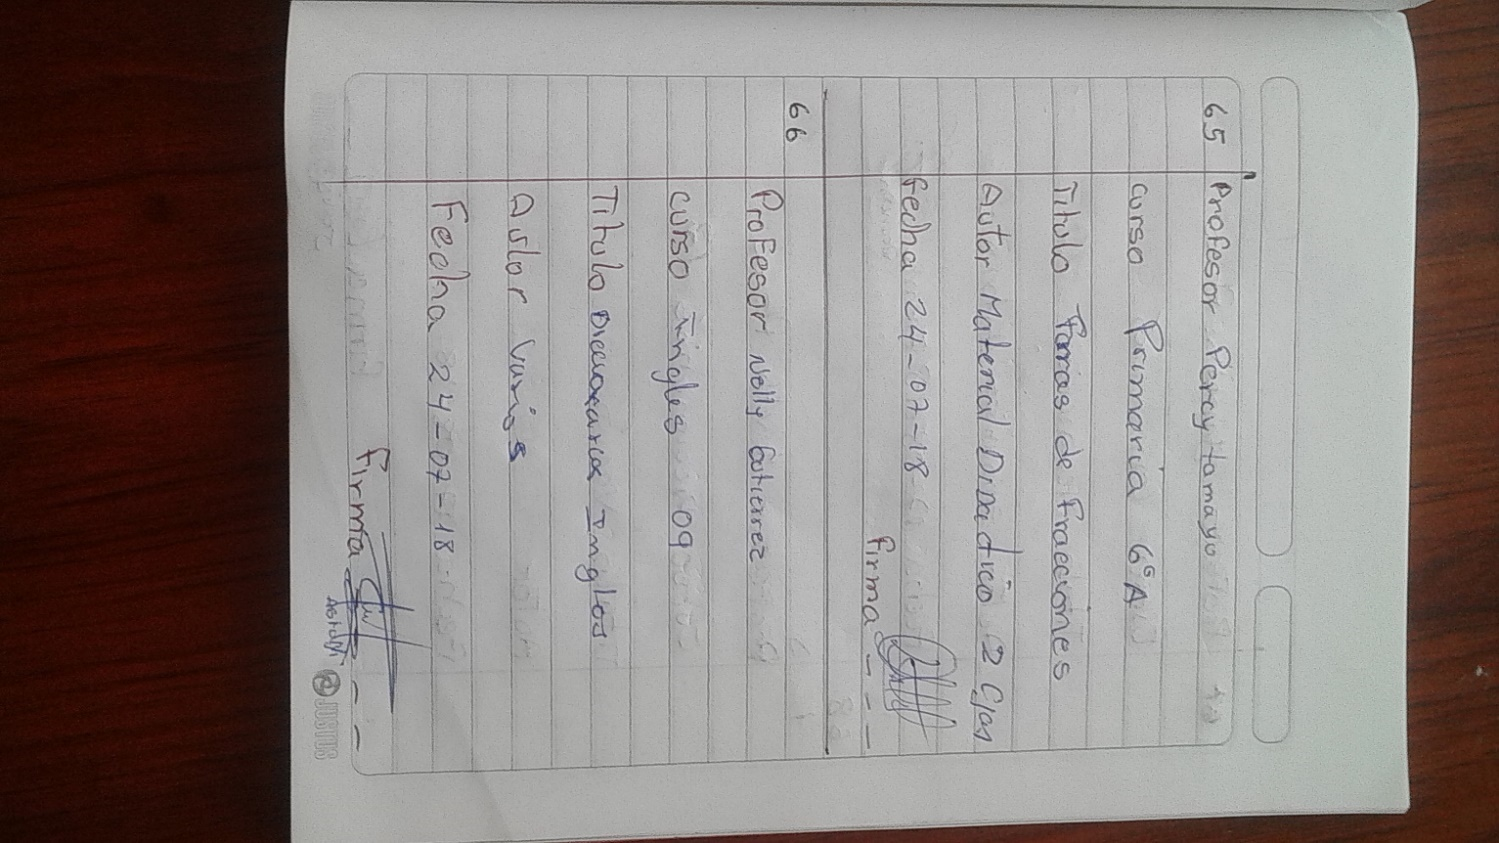 65 Profesor Percy tamayo
curso Primaria 6º A
Titulo Torras de Fraeciones
Autor Material Didadico 2 Cjas
Fecha 24-07-18
Firma - - -
66
Profesor Nelly Gutierrez
curso Ingles 09
Titulo Diccionarios Ingles
Autor Varios
Fecha 24-07-18
Firma - -
JUSTUS